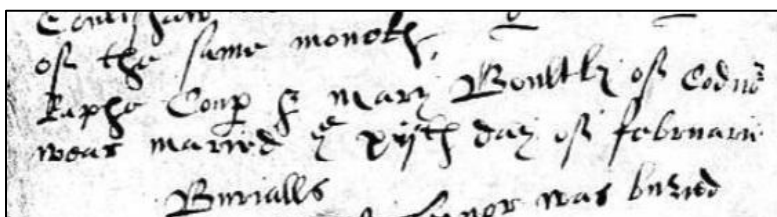 of the same monoth
Raphe Coup & Mary Boultby of Codnor
weas maried ye xijth day of februarie
Burialls
was buried